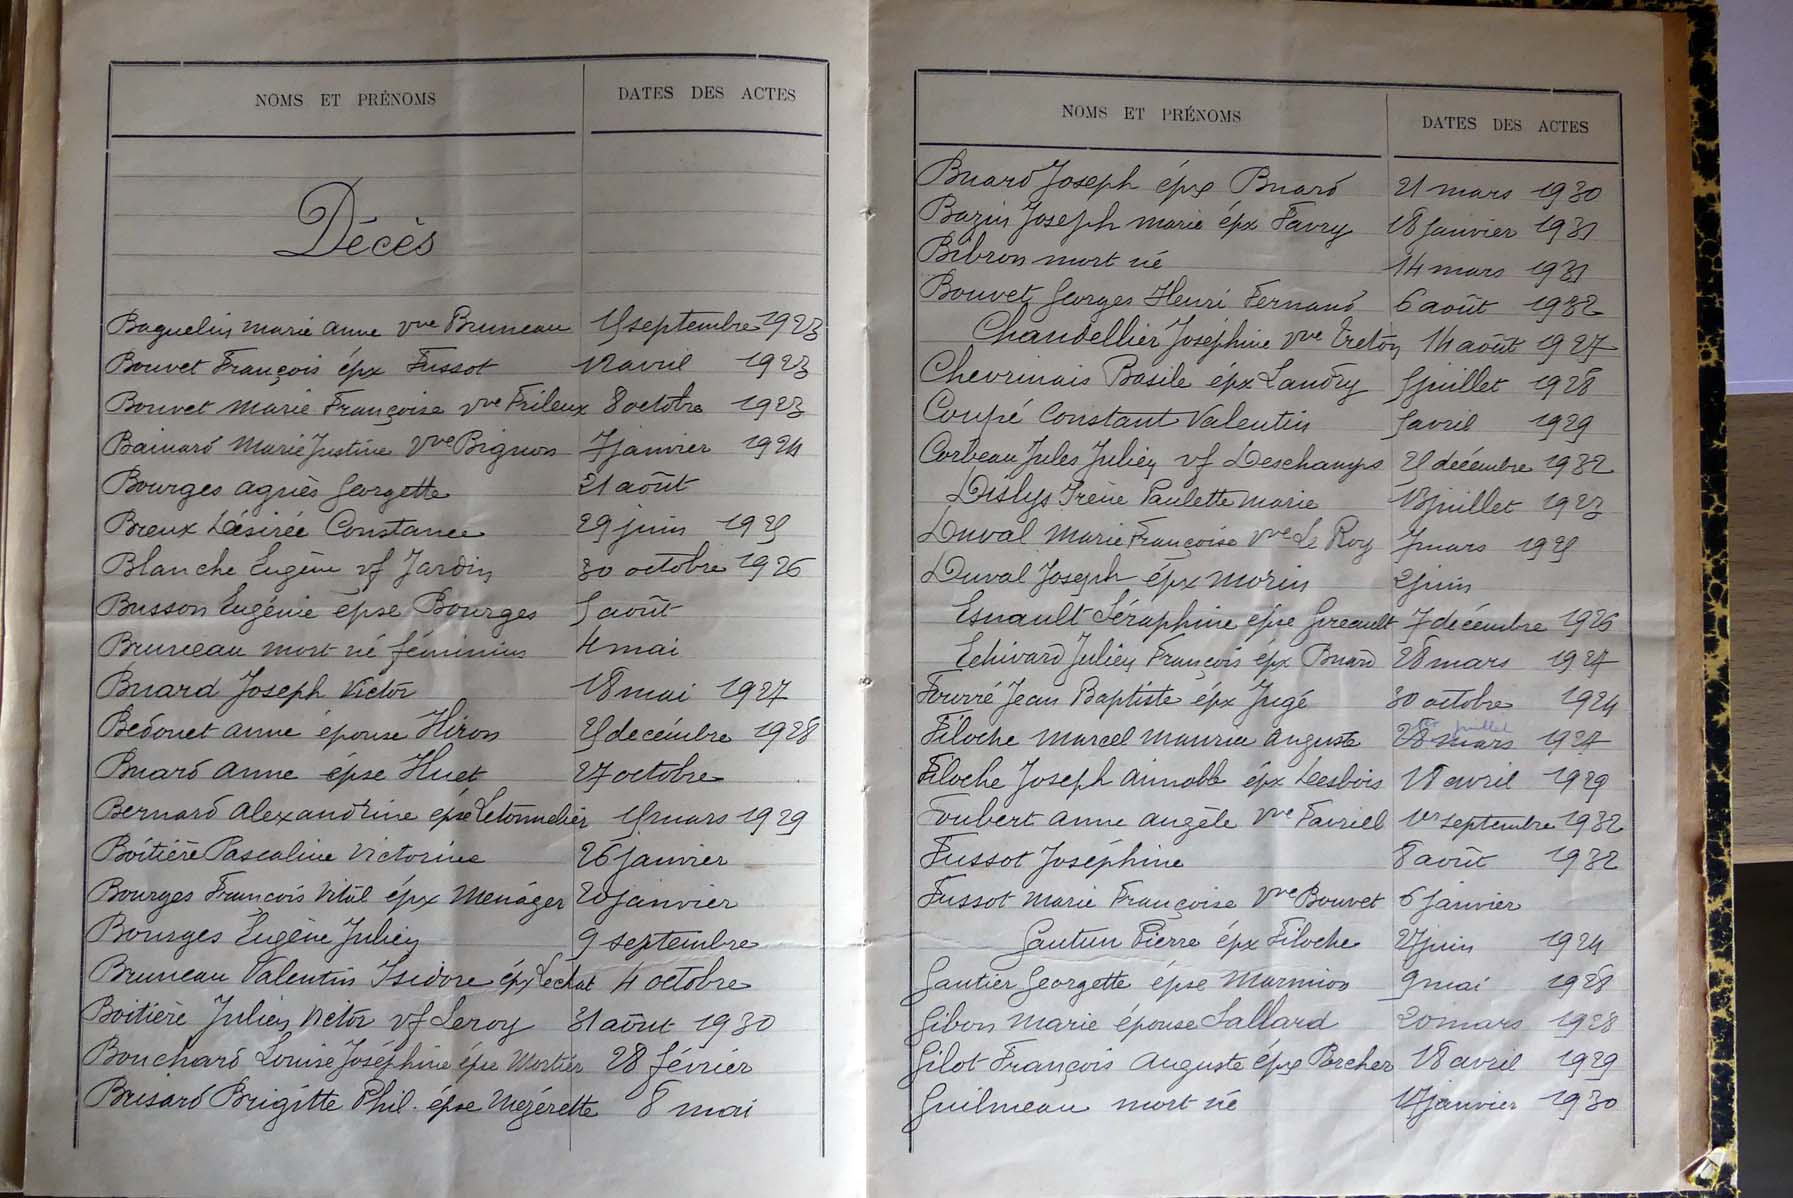 NOMS ET PRÉNOMS DATES DES ACTES
Décès
Baguelin marie anne vve Bruneau 15 septembre 1923
Bouvet François épx Fussot 12 avril 1923
Bouvet Marie Françoise vve Frileux 8 octobre 1923
Bainard Marie Justine Vve Bignon 7 janvier 1924
Bourges agnès georgette 21 août
Breux Désirée Constance 29 juin 1925
Blanche Eugène vf Jardin 30 octobre 1926
Busson Eugénie épse Bourges 5 août
Bruneau mort né féminin 4 mai
Buard Joseph Victor 18 mai 1927
Bedouet anne épouse Hiron 25 decémbre 1928
Buard anne épse Huet 27 octobre
Bernard alexandrine épse Letonnelier 15 mars 1929
Boîtière Pascaline Victorine 26 janvier
Bourges François Vital épx Menáger 20 janvier
Bourges Eugène Julien 9 septembre
Bruneau Valentin Isidore épx Lechat 4 octobre
Boitière Julien Victor vf Leroy 31 août 1930
Bouchard Louise Joséphine épse Mortier 28 février
Brisard Brigitte Phil. épse Mézérette 8 mai
NOMS ET PRÉNOMS DATES DES ACTES
Buard Joseph épx Buard 21 mars 1930
Bazin Joseph marie épx Favry 18 janvier 1931
Bibron mort né 14 mars 1931
Bouvet Georges Henri Fernand 6 août 1932
Chandellier Joséphine vve Treton 14 août 1927
Chevrinais Basile épx Landry 5 juillet 1928
Coupé Constant Valentin 5 avril 1929
Corbeau Jules Julien vf Deschamps 25 décémbre 1932
Dislys Irène Paulette Marie 13 juillet 1923
Duval Marie Françoise vve Le Roy 7 mars 1925
Duval Joseph épx Morin 2 juin
Esnault Séraphine épse Gireault 7 décémbre 1926
Echivard Julien François épx Buard 28 mars 1927
Fourré Jean Baptiste épx Jugé 30 octobre 1924
Filoche Marcel Maurice Auguste 28 mars juillet 1927
Filoche Joseph aimable épx Lesbois 18 avril 1929
Foubert anne angèle Vve Favriel 1er septembre 1932
Fussot Joséphine 8 août 1932
Fussot Marie Françoise Vve Bouvet 6 janvier
Gautun Pierre épx Filoche 27 juin 1924
Gautier Georgette épse Marmion 9 mai 1928
Gibon Marie épouse Sallard 20 mars 1928
Gilot François Auguste épx Porcher 18 avril 1929
Guilmeau mort né 17 janvier 1930